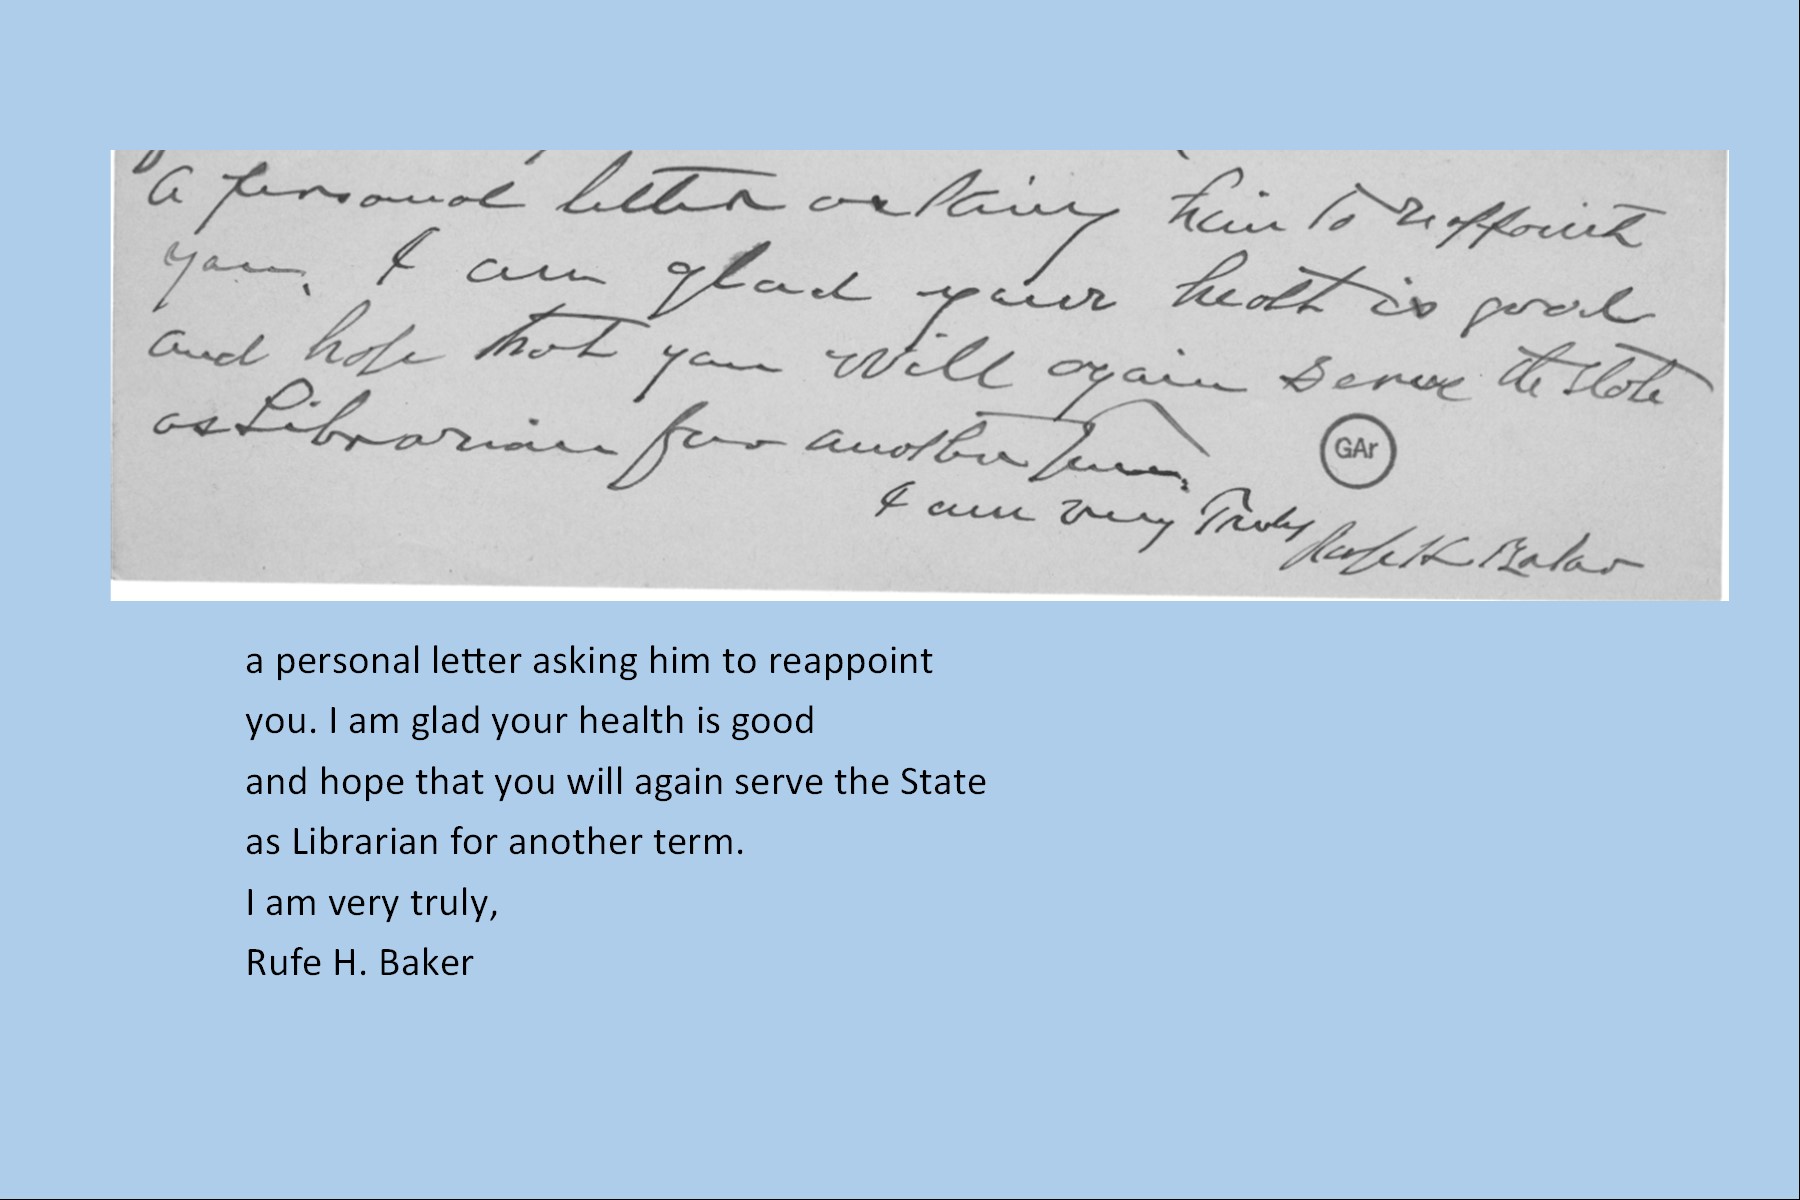 a personal letter asking him to reappoint
you. I am glad your healt is good
and hope that you will again serve the State
as Librarian for another term.
GAr
I am very Truly
Rufe H Baker
a personal letter asking him to reappoint
you. I am glad your health is good
and hope that you will again serve the State
as Librarian for another term.
I am very truly,
Rufe H. Baker